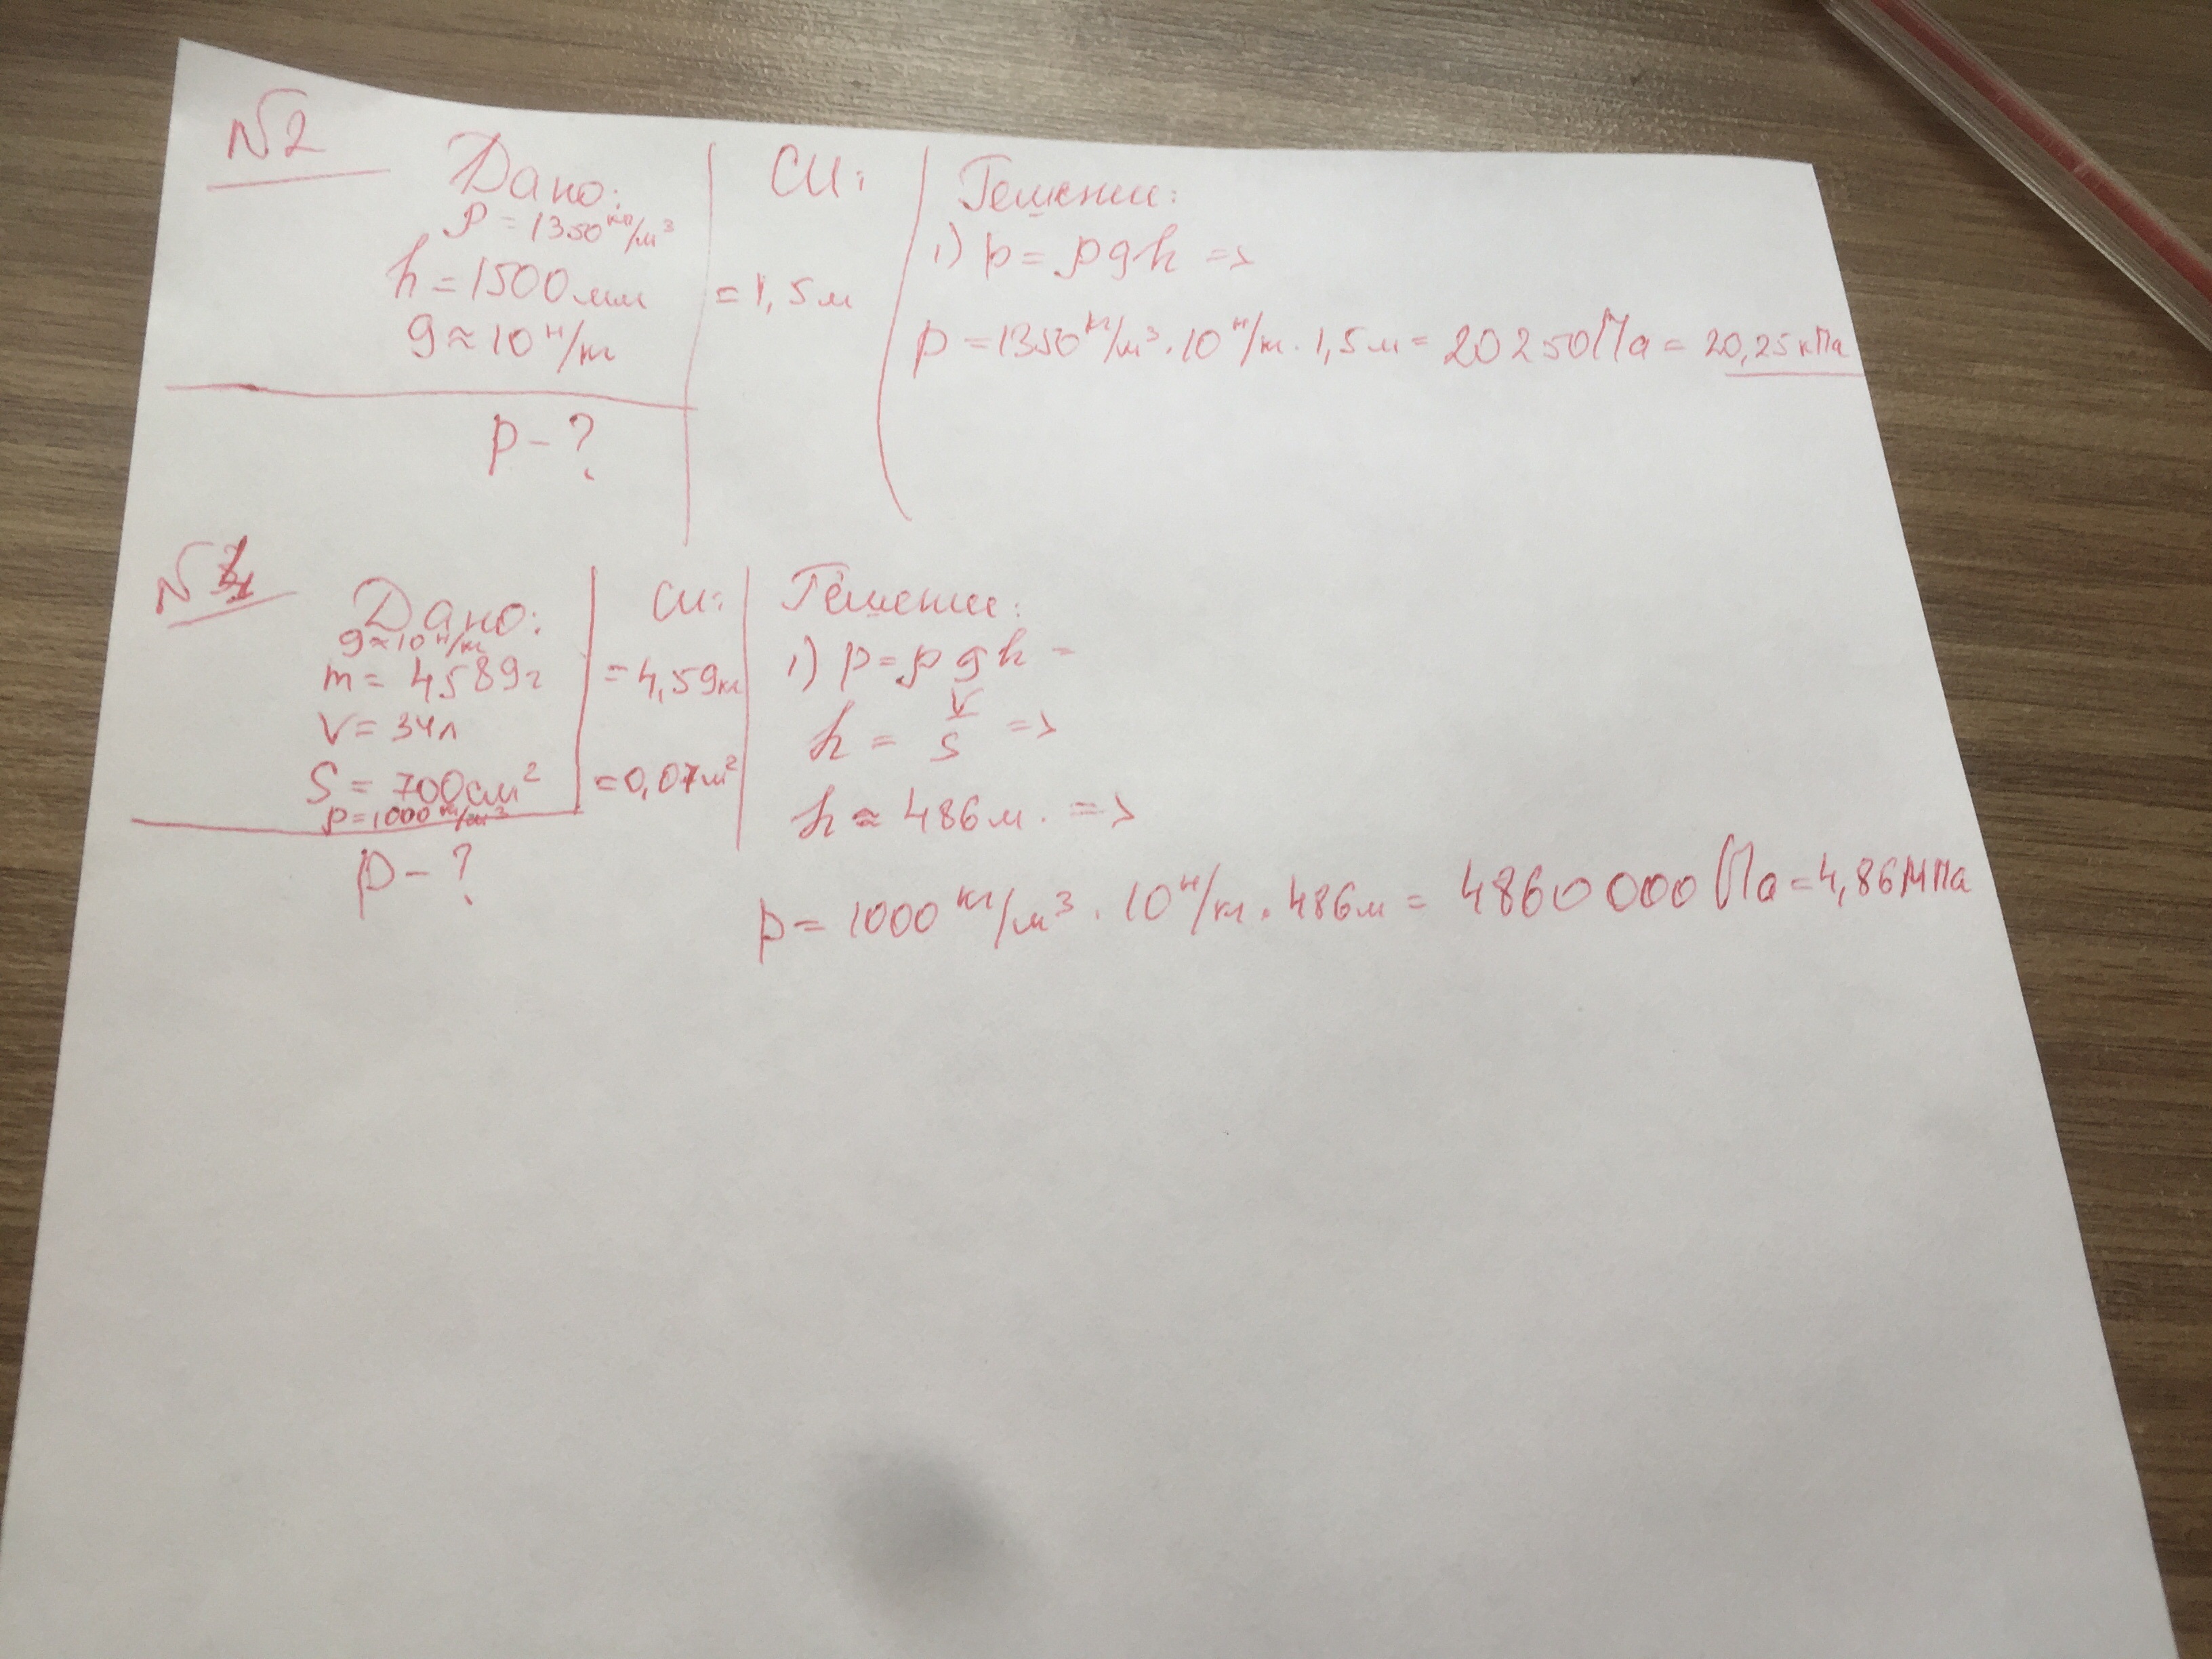 №2
Дано:
ρ = 1350 кг/м³
h = 1500 мм
g ≈ 10 н/кг
p - ?
СИ:
= 1,5 м
Решение:
1) p = ρgh =>
p = 1350 кг/м³ · 10 н/кг · 1,5 м = 20 250 Па = 20,25 кПа
№1
Дано:
g ≈ 10 н/кг
m = 4589 г
V = 34 л
S = 700 см²
ρ = 1000 кг/м³
p - ?
СИ:
= 4,59 кг
= 0,07 м²
Решение:
1) p = ρgh =
h = V/S =>
h ≈ 486 м. =>
p = 1000 кг/м³ · 10 н/кг · 486 м = 4860 000 Па = 4,86 МПа